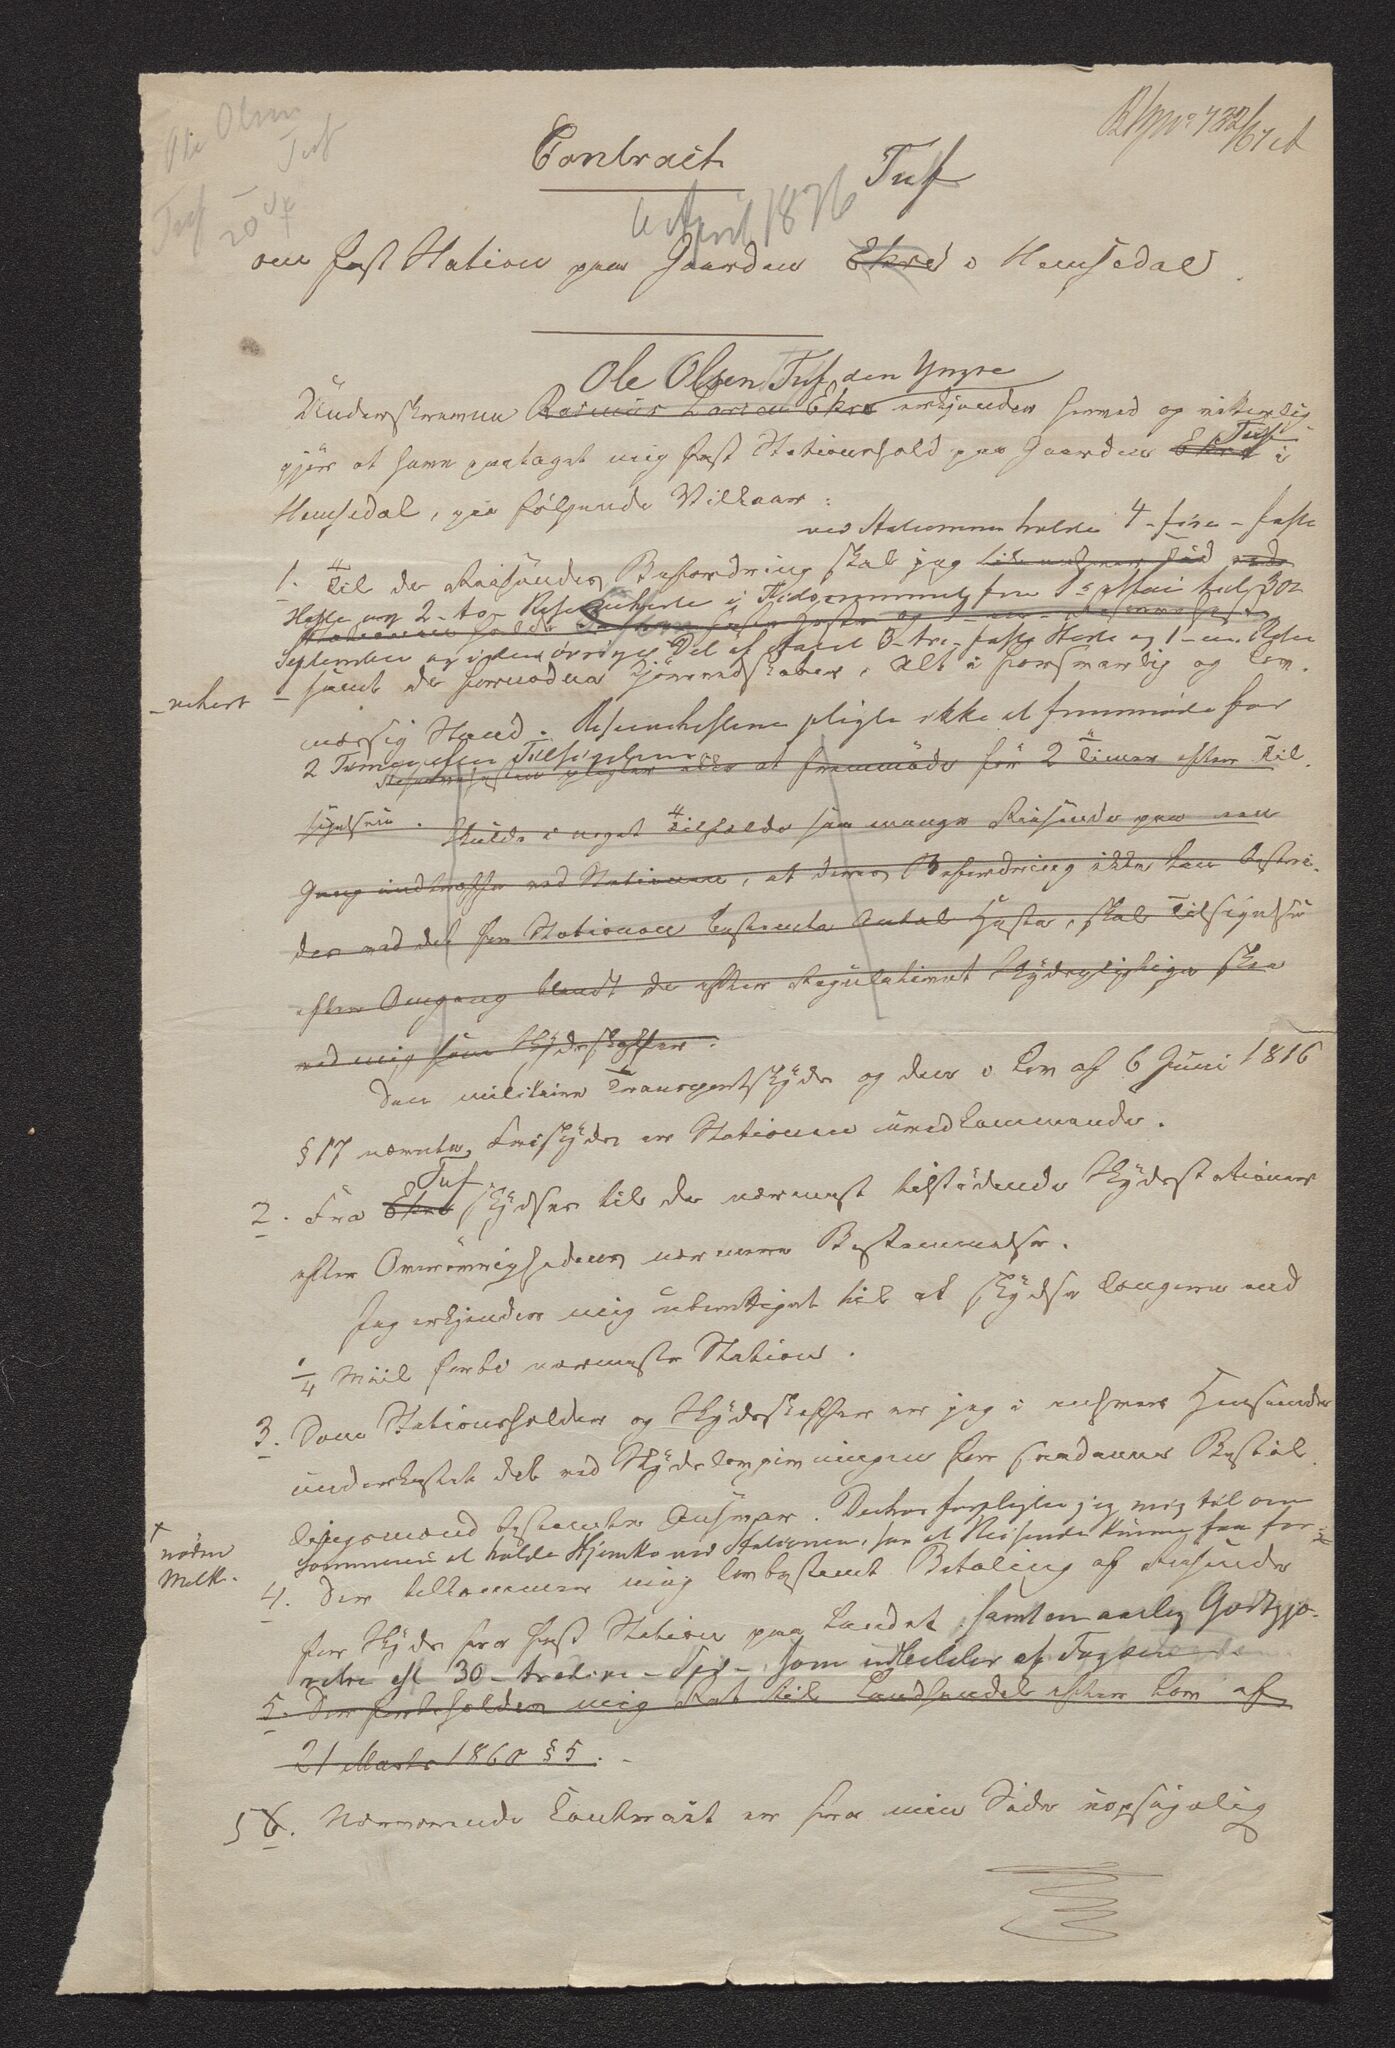 Ole Olsen
Tuf
Tuf
Contract
Tuf
April 1876
om fast Station paa Gaarden Ekre i Hemsedal.
Ole Olsen Tuf den Yngre
Underskrevne Rasmus Larsen Ekre erkjender herved og vitterlig
gjør at have paataget mig fast Stationshold paa Gaarden Ekre Tuf i
Hemsedal, paa følgende Vilkaar:
ved Stationen holde 4 - fire - faste
1. Til de Reisendes Befordring skal jeg til enhver Tid ved
Heste og 2 - to - Reserveheste i Tidsrummet fra 1ste Mai til 30te
Stationen holde faste Heste og Reserveheste
September og i den øvrige Del af Aaret 3 - tre - faste Heste og 1 - en Reserve
- vehest - samt de fornødne Kjøreredskaber, Alt i forsvarlig og lov-
mæssig Stand. Reservehestene pligte ikke at fremmøde før
2 Timer efter Tilsigelsen
Reservehesten pligter ikke at fremmøde før 2 Timer efter Til-
sigelsen. Skulde i noget Tilfælde saa mange Reisende paa een
Gang indtræffe ved Stationen, at deres Befordring ikke kan bestri-
des med det for Stationen bestemte Antal Heste, skal Tilsigelse
efter Omgang blandt de efter Regulativet Skydspligtige ske
ved mig som Skydsskaffer.
Den militaire Transportskyds og den i Lov af 6 Juni 1816
§ 17 nævnte Friskyds er Stationen uvedkommende.
2. Fra Ekre Tuf skydses til de nærmest tilstødende Skydsstationer
efter Overøvrighedens nærmere Bestemmelse.
Jeg erkjender mig uberettiget til at skydse længere end
1/4 Miil forbi nærmeste Station.
3. Som Stationsholder og Skydsskaffer er jeg i enhver Henseende
underkastet det ved Skydslovgivningen for saadanne Bestil-
lingsmænd bestemte Ansvar. Derhos forpligter jeg mig til om
Sommeren at holde Hjemko ved Stationen, saa at Reisende kunne faa for-
nøden
Melk.
4. Der tilkommer mig lovbestemt Betaling af Reisende
for Skyds fra fast Station paa Landet samt en aarlig Godtgjø-
relse af 30 - tredive - Spd - som udbetales af
5. Der forbeholdes mig Ret til Landhandel efter Lov af
21 Marts 1860 § 5.
5 6. Nærværende Contract er fra min Side uopsigelig